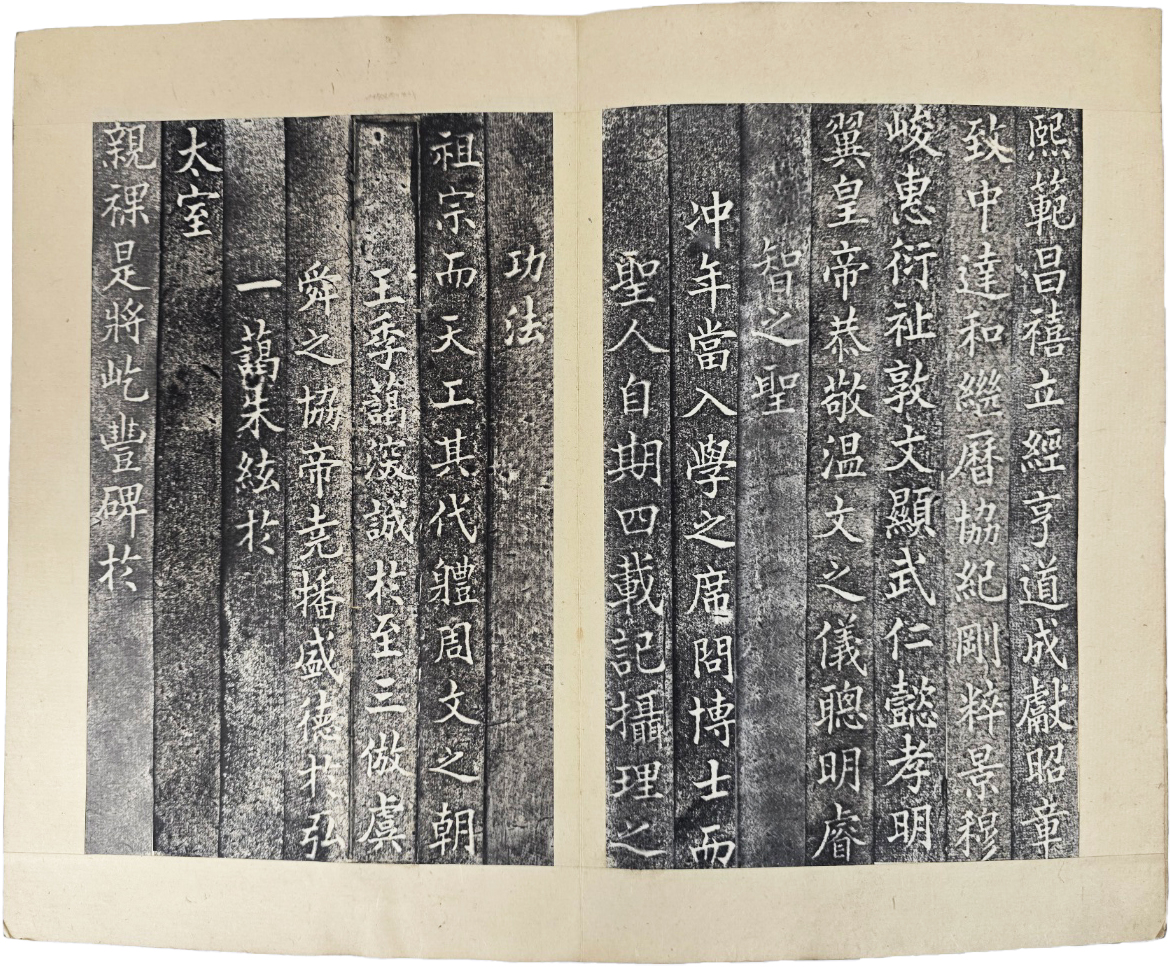 熙範昌禧立經亨道成獻昭章
致中達和繼曆協紀剛粹景穆
峻惠衍祉敦文顯武仁懿孝明
翼皇帝恭敬温文之儀聰明睿
智之聖
冲年當入學之席問博士而
聖人自期四載記攝理之
功法
祖宗而天工其代軆周文之朝
王季藹滾誠於至三倣虞
舜之協帝堯播盛德於弘
一藹朱絃於
太室
親祼是將屹豐碑於